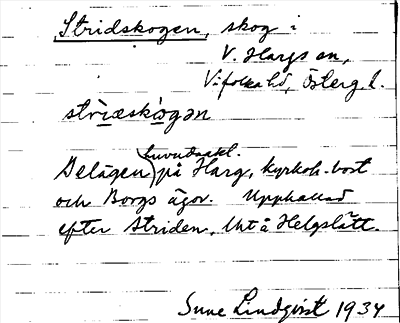 Stridskogen, skog i
V. Hargs sn,
Vifolka hd, Österg. l.
striæskògən
huvudsakl.
Belägen på Harg, kyrkoh. bost
och Borgs ägor. Uppkallad
efter Striden. Utt å Helgslätt.
Sune Lindqvist 1934